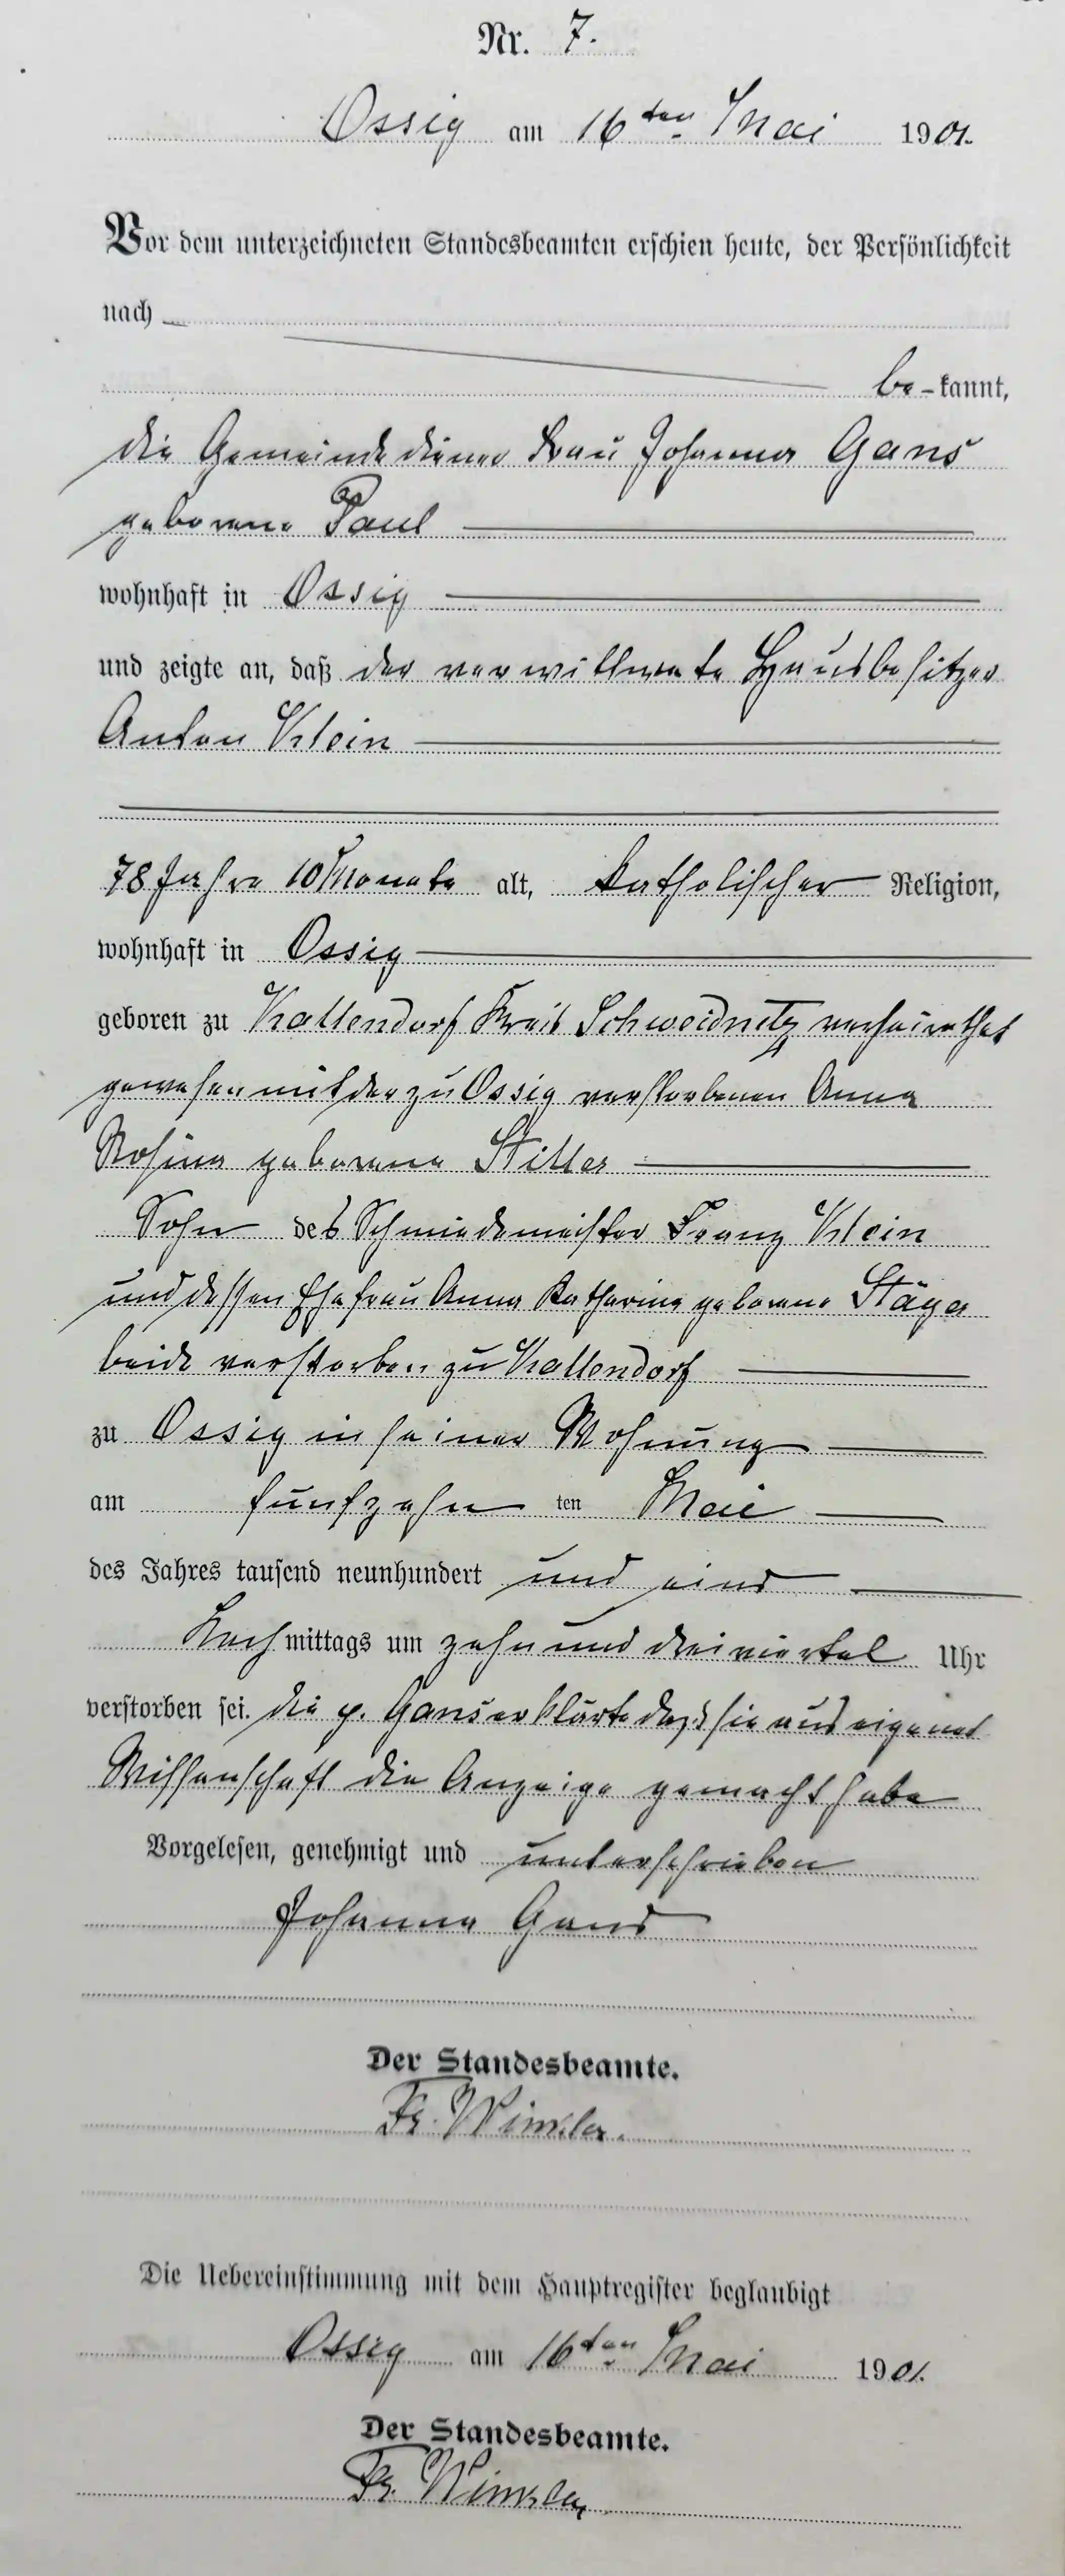 Nr. 7.
Ossig am 16ten Mai 1901.
Vor dem unterzeichneten Standesbeamten erschien heute, der Persönlichkeit
nach
be-kannt,
die Gemeindediener Frau Johanna Gans
geborene Paul
wohnhaft in Ossig
und zeigte an, daß der verwittwete Hausbesitzer
Anton Klein
78 Jahre 10 Monate alt, katholischer Religion,
wohnhaft in Ossig
geboren zu Kallendorf Kreis Schweidnitz verheirathet
gewesen mit der zu Ossig verstorbenen Anna
Rosina geborene Stiller
Sohn des Schmiedemeister Franz Klein
und dessen Ehefrau Anna Katharina geborene
beide verstorben zu Kallendorf
zu Ossig in seiner Wohnung
am fünfzehn ten Mai
des Jahres tausend neunhundert und eins
Nachmittags um zehn und dreiviertel Uhr
verstorben sei. Die p. Gans erklärte daß sie aus eigener
Wissenschaft die Anzeige gemacht habe
Vorgelesen, genehmigt und unterschrieben
Johanna Gans
Der Standesbeamte.
Fr. Winkler.
Die Uebereinstimmung mit dem Hauptregister beglaubigt
Ossig am 16ten Mai 1901.
Der Standesbeamte.
Fr. Winkler